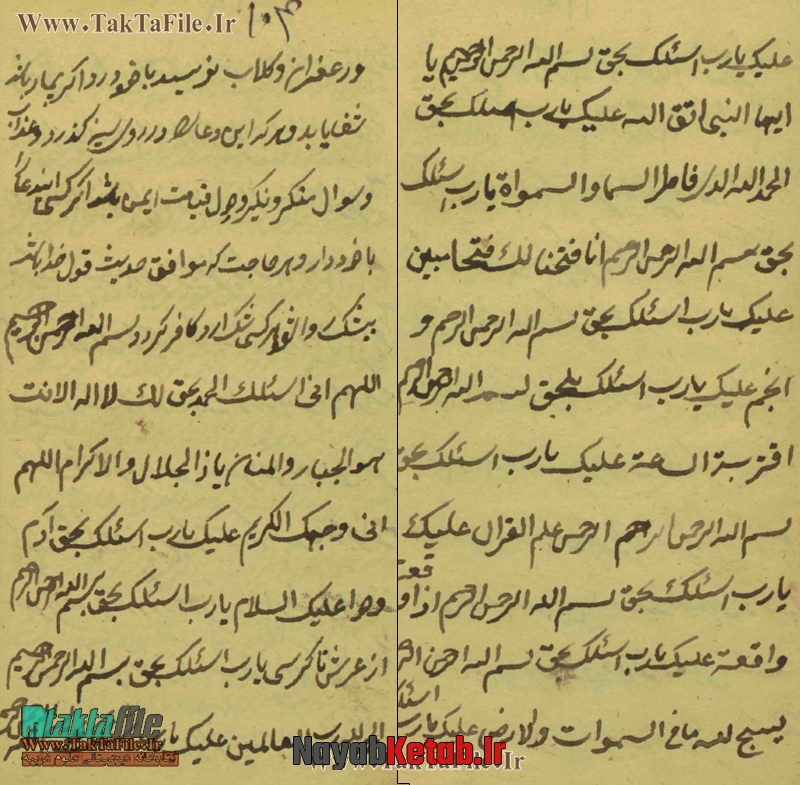 Www.TakTaFile.Ir
۱۰۳
www.TakTaFile.Ir
و زعفران و کلاب نویسد با خود دارد اگر بیمار باشد
شفا یابد و هر که این دعا در روی سینه گذارد و عذاب
و سوال منکر و نکیر و هول قیامت ایمن باشد اگر کسی
با خود دارد و هر حاجت که موافق حدیث قول خدا باشد
بیشک و هر کسی شک ارد کافر گردد بسم الله الرحمن الرحیم
اللهم انی اسئلک الحمد بحق لک لا اله الا انت
هو الجبار والمنان یا ذالجلال والاکرام اللهم
انی وجهک الکریم علیک یا رب اسئلک بحق آدم
و حوا علیک السلام یا رب اسئلک بحق بسم الله الرحمن الرحیم
از عرش تا کرسی یا رب اسئلک بحق بسم الله الرحمن الرحیم
رب العالمین علیک یا رب
علیک یا رب اسئلک بحق بسم الله الرحمن الرحیم یا
ایها النبی اتق الله علیک یا رب اسئلک بحق
الحمد الله الذی فاطر السما والسمواة یا رب اسئلک
بحق بسم الله الرحمن الرحیم انا فتحنا لک فتحا مبین
علیک یا رب اسئلک بحق بسم الله الرحمن الرحیم و
انجم علیک یا رب اسئلک بحق بسم الله الرحمن الرحیم
اقتربة الساعة علیک یا رب اسئلک بحق
بسم الله الرحمن الرحیم الرحمن علم القران علیک
یا رب اسئلک بحق بسم الله الرحمن الرحیم اذا وقعة
واقعة علیک یا رب اسئلک بحق بسم الله الرحمن الرحیم
یسبح لله ما فی السموات والارض علیک یا رب اسئلک
taktafile
Www.TakTaFile.Ir
NayabKetab.Ir
Www.TakTaFile.Ir